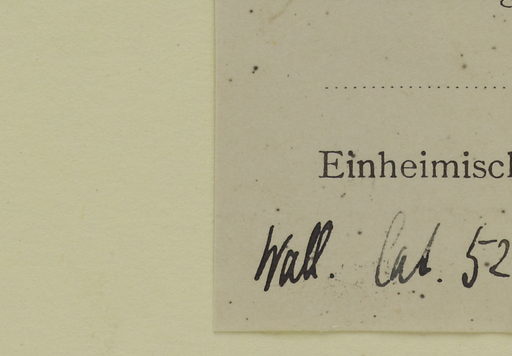 Einheimisch
Wall. Cat. 52